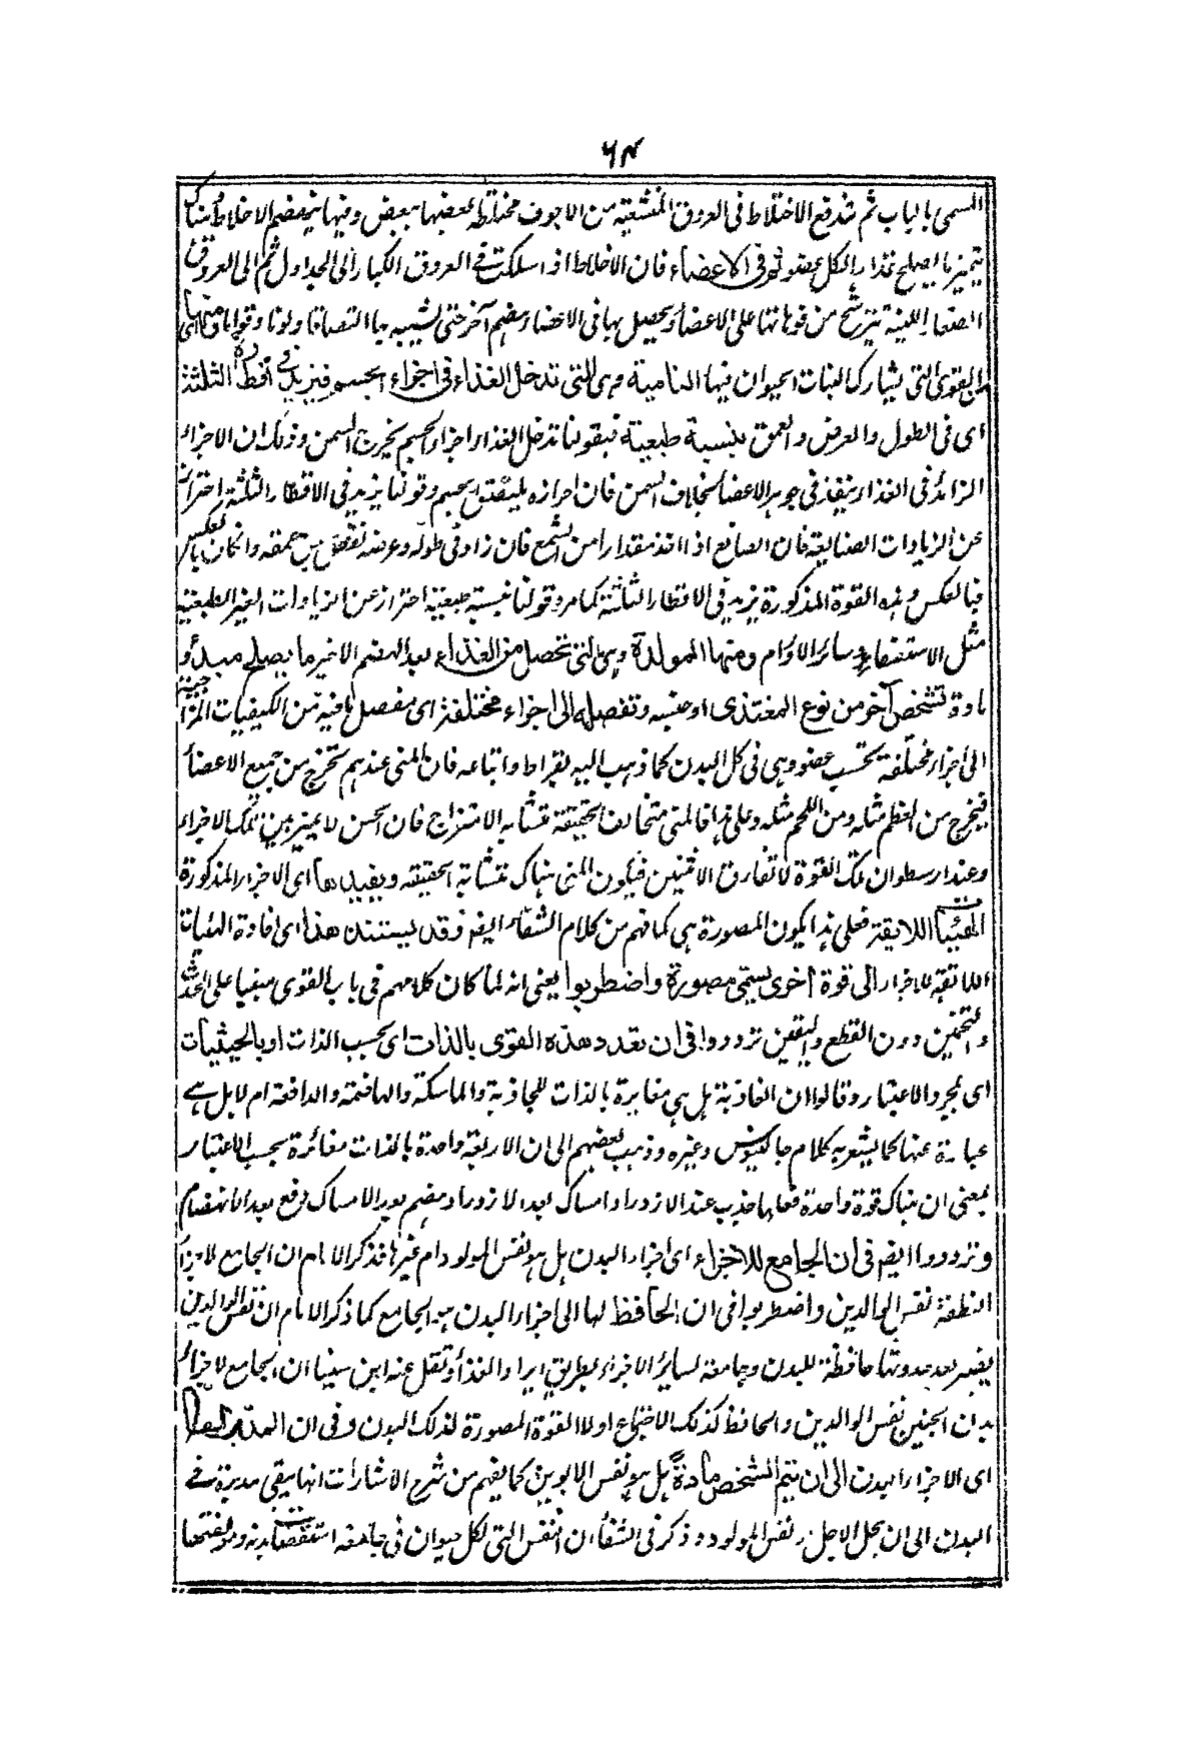 ٦٤
المسمى بالباب ثم تندفع الاخلاط فى العروق المنشعبة من الاجوف مختلطة بعضها ببعض وفيها ثم يهضم الاخلاط هناك
يتميز ما يصلح غذاء لكل عضو ثم فى الاعضاء فان الاخلاط اذا سلكت فى العروق الكبار الى الجداول ثم الى العروق
الصغار اللينة يترشح من فوهاتها على الاعضاء ويحصل لها فى الاعضاء هضم آخر حتى تشبيه بها التصاقا ولونا وقواما ومنها اى
من القوى التى يشارك النبات الحيوان فيها النامية وهى التى تدخل الغذاء فى اجزاء الجسم فيزيد فى اقطاره الثلثة
اى فى الطول والعرض والعمق بنسبة طبعية فبقولنا تدخل الغذاء اجزاء الجسم يخرج السمن وذلك ان الاجزاء
الزائدة فى الغذاء ينفذ فى جوهر الاعضاء بخلاف السمن فان اجزاءه يلتصق بالجسم وقولنا يزيد فى الاقطار الثلثة احتراز
عن الزيادات الصناعية فان الصانع اذا اخذ مقدارا من الشمع فان زاد فى طوله وعرضه نقص من عمقه وان كان بالعكس
فبالعكس وهذه القوة المذكورة يزيد فى الاقطار الثلثة كما مر وقولنا بنسبة طبعية احتراز عن الزيادات الغير الطبعية
مثل الاستسقاء وسائر الاورام ومنها المولدة وهى التى تحصل من الغذاء بعد الهضم الاخير ما يصلح مبدأ و
مادة لشخص آخر من نوع المغتذى او جنسه وتفصله الى اجزاء مختلفة اى يفصل ما فيه من الكيفيات المزاجية
الى اجزاء مختلفة بحسب عضو وهى فى كل البدن كما ذهب اليه بقراط واتباعه فان المنى عندهم يخرج من جميع الاعضاء
فيخرج من العظم مثله ومن اللحم مثله وعلى هذا فالمنى متخالف الحقيقة متشابه الامتزاج فان الحس لا يميز بين تلك الاجزاء
وعند ارسطو ان تلك القوة لا تفارق الانثيين فيكون المنى هناك متشابه الحقيقة ويفيدها اى الاجزاء المذكورة
الهيئات اللايقة فعلى هذا يكون المصورة هى كما فهم من كلام الشفاء ايضا وقد يستند هذا اى افادة الهيئات
اللائقة للاجزاء الى قوة اخرى يسمى مصورة واضطربوا يعنى انه لما كان كلامهم فى باب القوى مبنيا على الحدث
والتخمين دون القطع واليقين ترددوا فى ان تعدد هذه القوى بالذات اى بحسب الذات او بالحيثيات
اى بمجرد الاعتبار وقالوا ان الغاذية هل هى مغايرة بالذات للجاذبة والماسكة والهاضمة والدافعة ام لا بل هى
عبارة عنها كما يشعر به كلام جالينوس وغيره وذهب بعضهم الى ان الاربعة واحدة بالذات مغائرة بحسب الاعتبار
بمعنى ان هناك قوة واحدة فعلها جذب عند الازدراد امساك بعد الازدراد هضم بعد الامساك دفع بعد الانهضام
وترددوا ايضا فى ان الجامع للاجزاء اى اجزاء البدن هل هو نفس المولود ام غيرها فذكر الامام ان الجامع لاجزاء
النطفة نفس الوالدين واضطربوا فى ان الحافظ لها الى اجزاء البدن هو الجامع كما ذكر الامام ان نفس الوالدين
يصير بعد حدوثها حافظة للبدن وجامعة لسائر الاجزاء بطريق ايراد الغذاء ونقل عنه ابن سينا ان الجامع لاجزاء
بدن الجنين نفس الوالدين والحافظ كذلك الاجتماع اولا القوة المصورة لذلك البدن وفى ان المدبر لها
اى الاجزاء البدن الى ان يتم الشخص مادة هل هو نفس الابوين كما يفهم من شرح الاشارات انها يبقى مدبرة فى
البدن الى ان يحل الاجل نفس المولود وذكر فى الشفاء ان النفس التى لكل حيوان فى جامعه استقصات بدنه ومولفتها